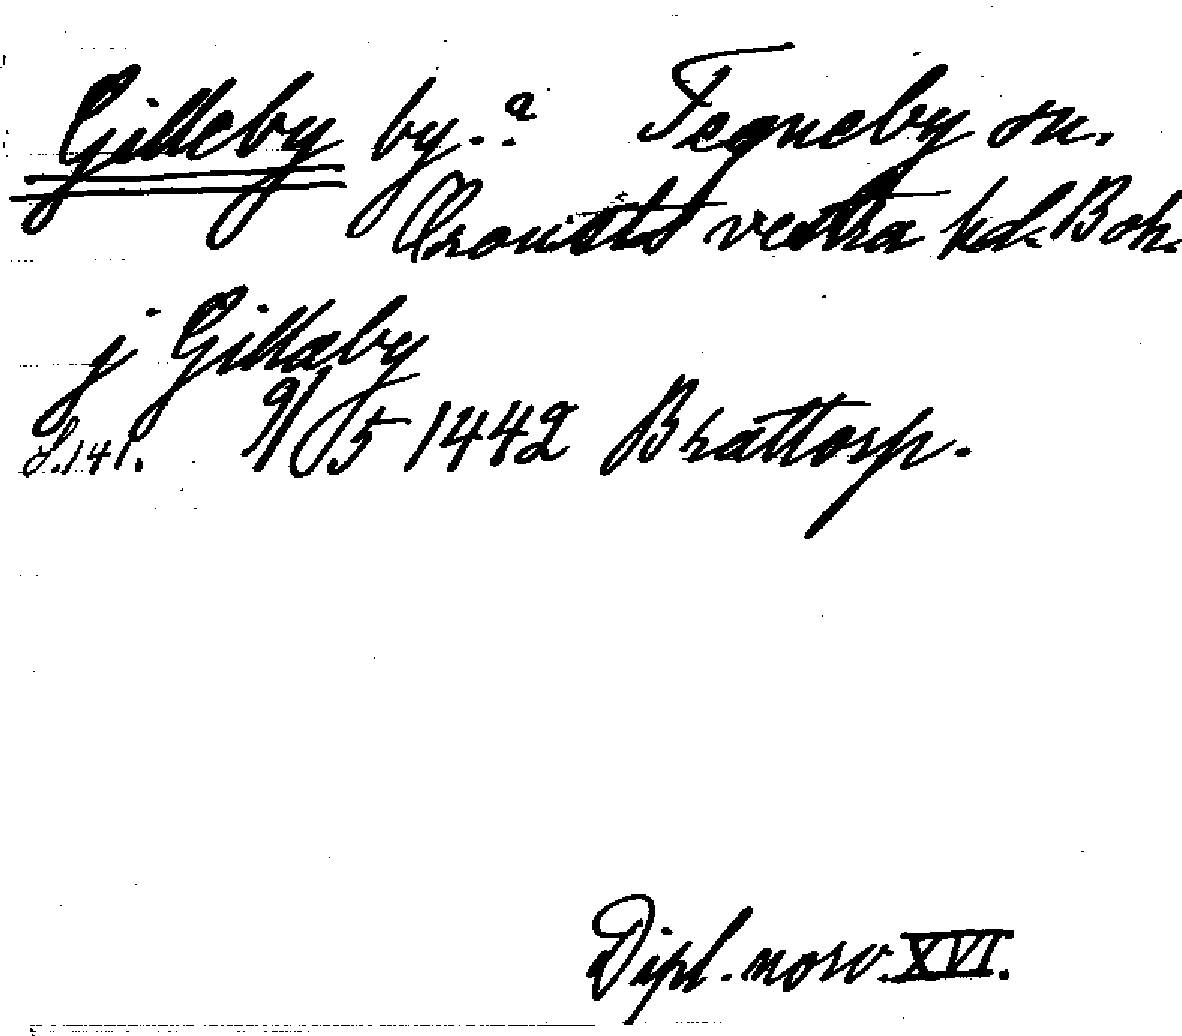 Gilleby by.? Tegneby sn.
Orousts vestra hd. Boh.
j Gillæby
S.141. 9/5 1442 Brattorp.
Dipl. norv. XVI.